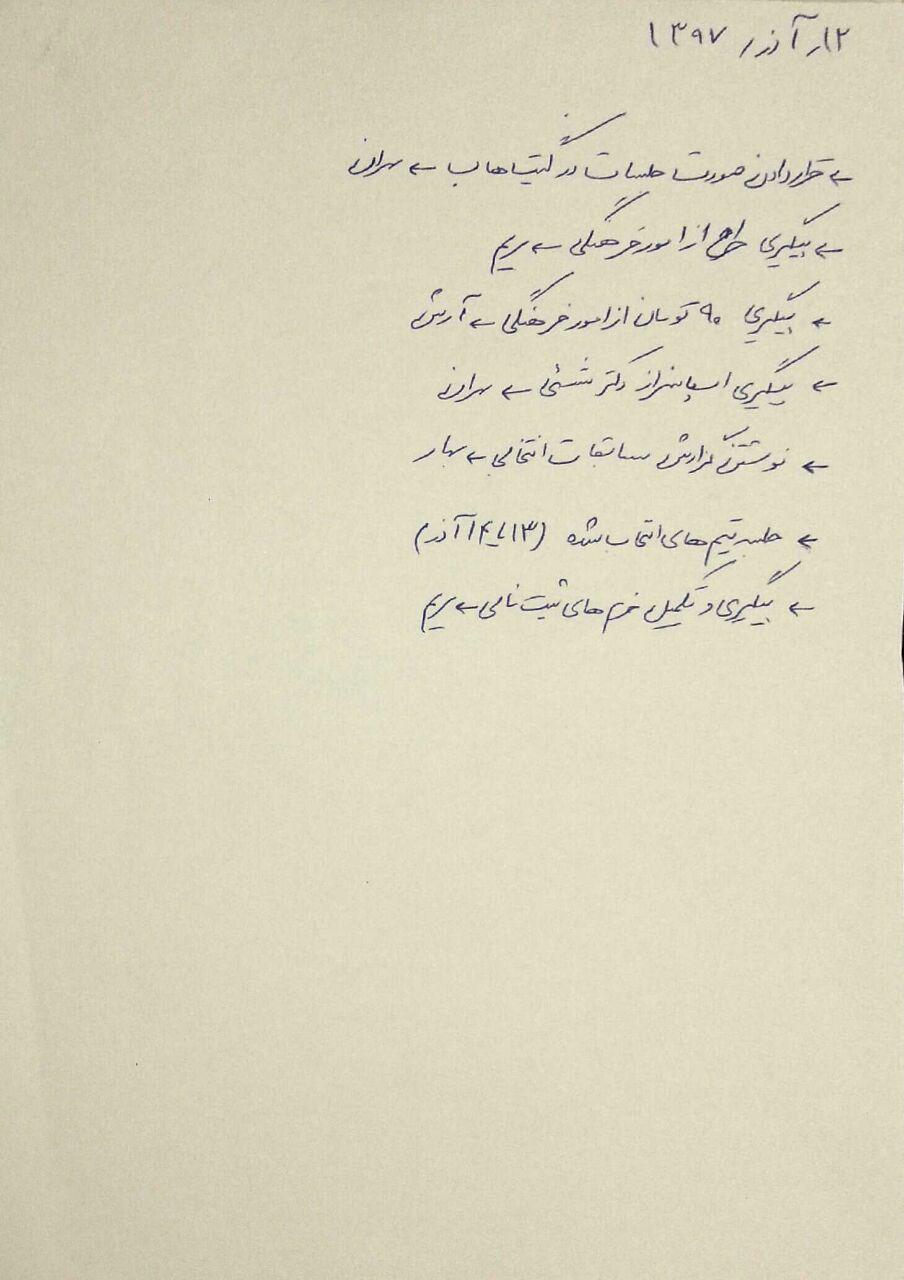 ۱۲ر آذر ۱۳۹۷
← قرار دادن صورت جلسات در گیت هاب ← مهران
← پیگیری طرح از امور فرهنگی ← مریم
← پیگیری ۹۰ تومان از امور فرهنگی ← آرش
← پیگیری اسپانسر از دکتر ← مهران
← نوشتن گزارش مسابقات انتخابی ← بهار
← جلسه تیم های انتخاب شده (۱۳ تا ۱۴ آذر)
← پیگیری و تکمیل فرم های ثبت نامی ← مریم